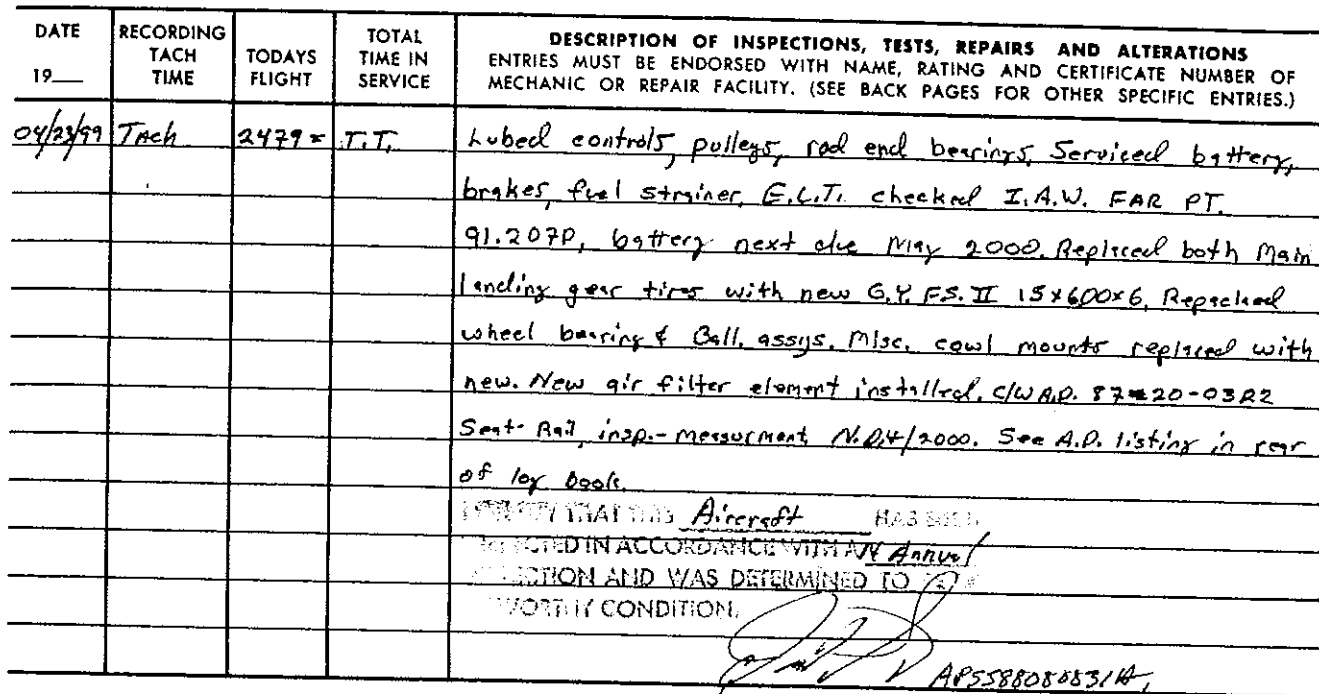 DATE RECORDING TACH TIME TODAYS FLIGHT TOTAL TIME IN SERVICE DESCRIPTION OF INSPECTIONS, TESTS, REPAIRS AND ALTERATIONS
19__ ENTRIES MUST BE ENDORSED WITH NAME, RATING AND CERTIFICATE NUMBER OF
MECHANIC OR REPAIR FACILITY. (SEE BACK PAGES FOR OTHER SPECIFIC ENTRIES.)
04/23/99 Tach 2479 = T.T. Lubed controls, pulleys, rod end bearings, Serviced battery,
brakes, fuel strainer, E.L.T. checked I.A.W. FAR PT.
91.207D, battery next due May 2000. Replaced both Main
landing gear tires with new G.Y. F.S. II 15x600x6, Repacked
wheel bearing & Ball. assys. Misc. cowl mounts replaced with
new. New air filter element installed. C/W A.D. 87-20-03R2
Seat-Rail, insp.-messurment N.D.4/2000. See A.D. listing in rear
of log book.
THAT THIS Aircraft HAS BEEN
IN ACCORDANCE WITH AN Annual
AND WAS DETERMINED TO
CONDITION.